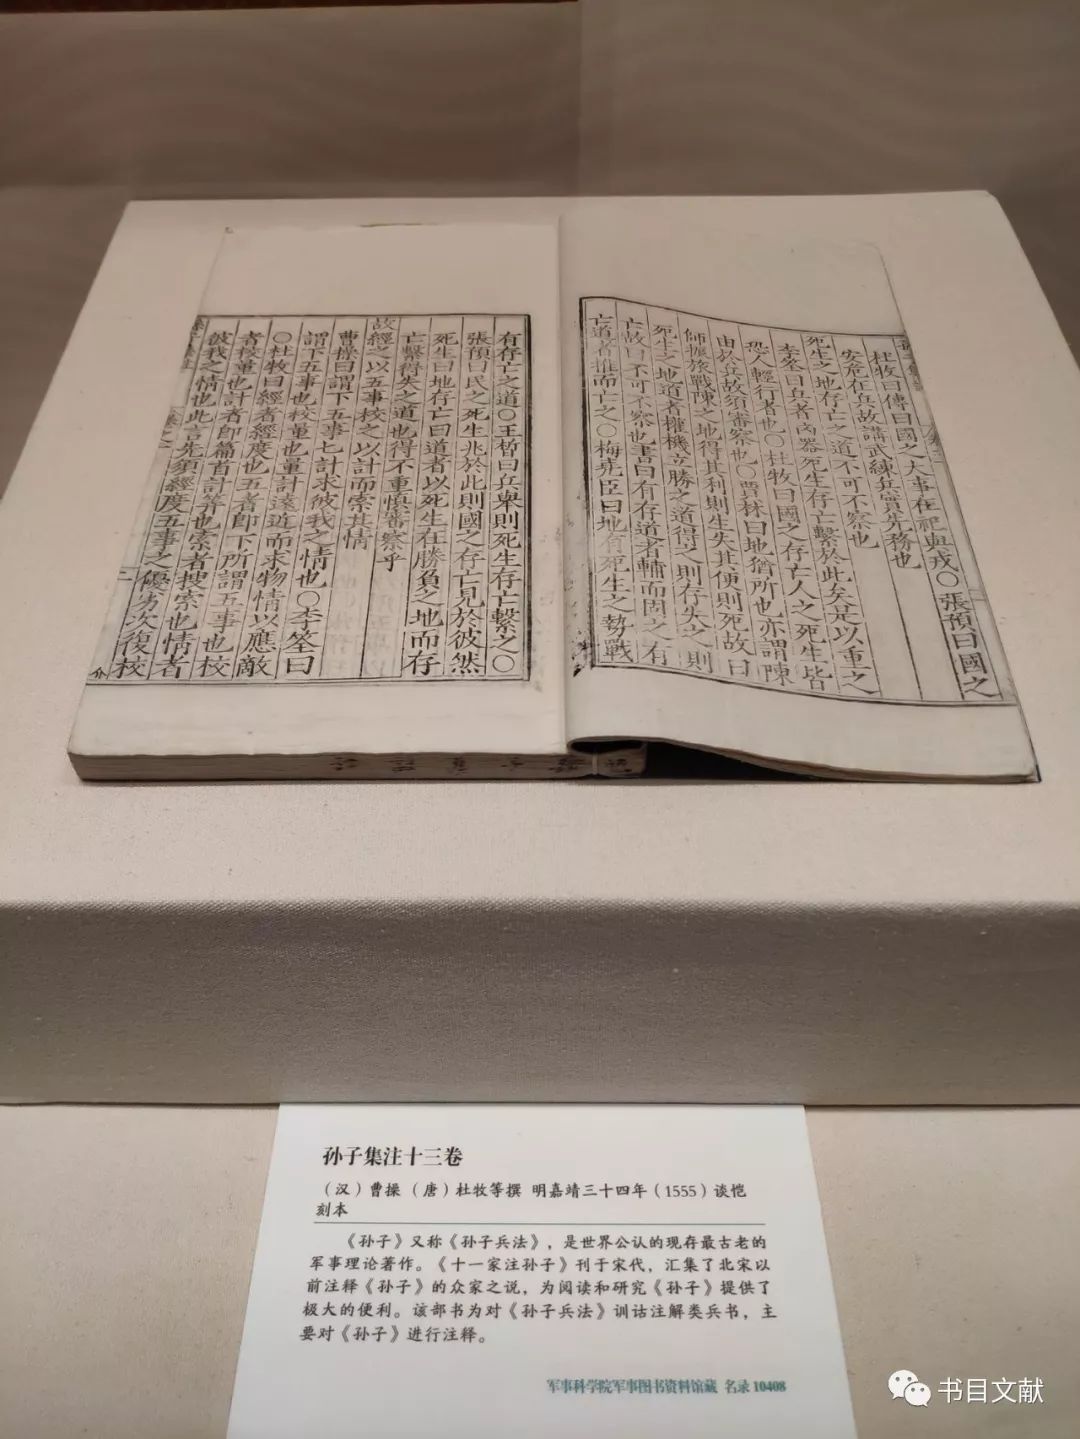 杜牧曰傳曰國之大事在祀與戎○張預曰國之
安危在兵故講武練兵實先務也
死生之地存亡之道不可不察也
李筌曰兵者凶器死生存亡繫於此矣是以重之
恐人輕行者也○杜牧曰國之存亡人之死生皆
由於兵故須審察也○賈林曰地猶所也亦謂陳
師振旅戰陳之地得其利則生失其便則死故曰
死生之地道者權機立勝之道得之則存失之則
亡故曰不可不察也書曰有存道者輔而固之有
亡道者推而亡之○梅堯臣曰地有死生之勢戰
有存亡之道○王晳曰兵舉則死生存亡繫之○
張預曰民之死生兆於此則國之存亡見於彼然
死生曰地存亡曰道者以死生在勝負之地而存
亡繫得失之道也得不重慎審察乎
故經之以五事校之以計而索其情
曹操曰謂下五事七計求彼我之情也○李筌曰
謂下五事也校量也量計遠近而求物情以應敵
○杜牧曰經者經度也五者即下所謂五事也校
者校量也計者即篇首計筭也索者搜索也情者
彼我之情也此言先須經度五事之優劣次復校
孙子集注十三卷
（汉）曹操（唐）杜牧等撰 明嘉靖三十四年（1555）谈恺
刻本
《孙子》又称《孙子兵法》，是世界公认的现存最古老的
军事理论著作。《十一家注孙子》刊于宋代，汇集了北宋以
前注释《孙子》的众家之说，为阅读和研究《孙子》提供了
极大的便利。该部书为对《孙子兵法》训诂注解类兵书，主
要对《孙子》进行注释。
军事科学院军事图书资料馆藏 名录 10408
书目文献